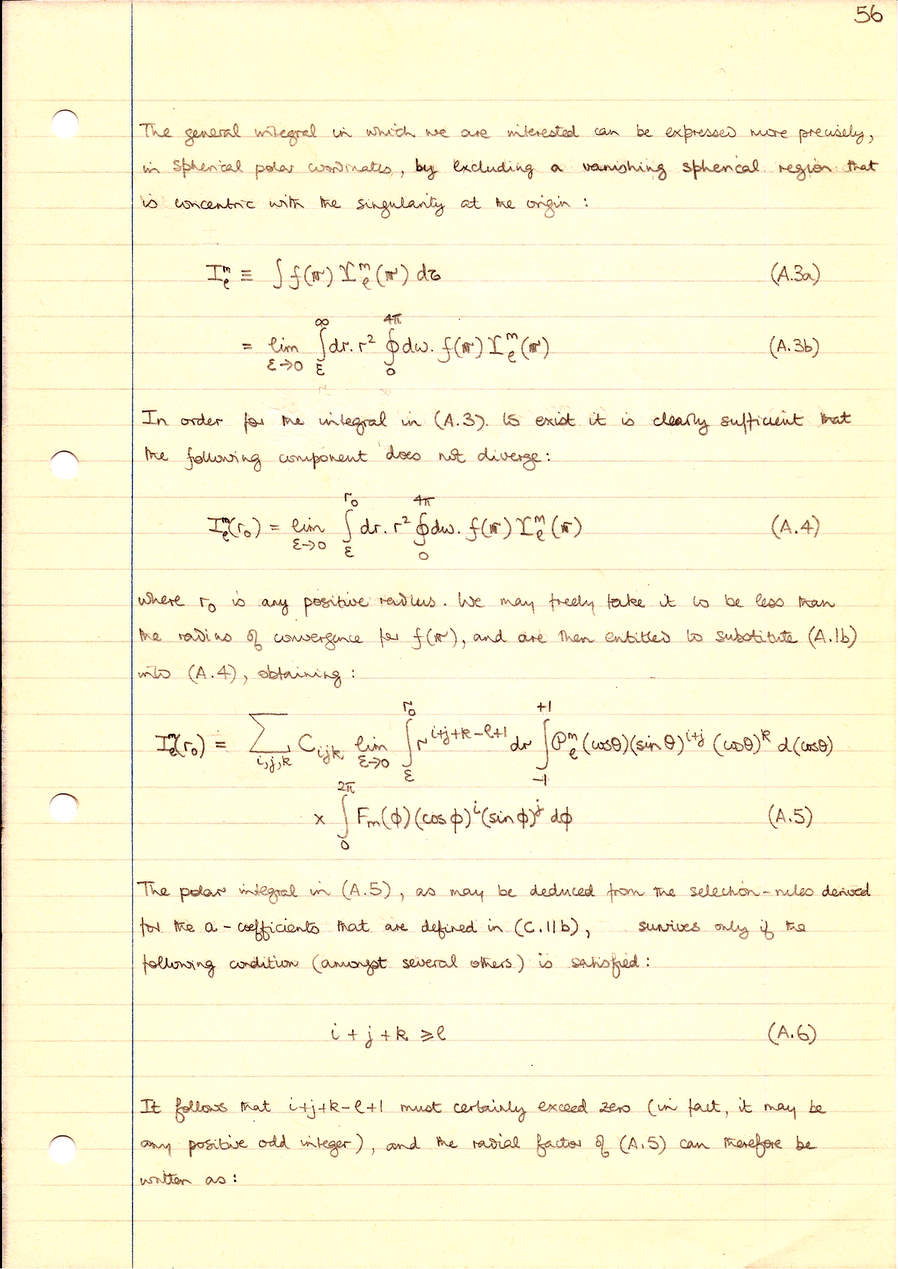 56
The general integral in which we are interested can be expressed more precisely,
in spherical polar coordinates, by excluding a vanishing spherical region that
is concentric with the singularity at the origin :
I_ℓ^m ≡ ∫ f(𝕣) Υ_ℓ^m(𝕣) dτ (A.3a)
= lim_{ε→0} ∫_ε^∞ dr. r² ∮_0^{4π} dω. f(𝕣) Υ_ℓ^m(𝕣) (A.3b)
In order for the integral in (A.3). to exist it is clearly sufficient that
the following component does not diverge:
I_ℓ^m(r₀) = lim_{ε→0} ∫_ε^{r₀} dr. r² ∮_0^{4π} dω. f(𝕣) Υ_ℓ^m(𝕣) (A.4)
where r₀ is any positive radius. We may freely take it to be less than
the radius of convergence for f(𝕣), and are then entitled to substitute (A.1b)
into (A.4), obtaining :
I_ℓ^m(r₀) = ∑_{i,j,k} C_{ijk} lim_{ε→0} ∫_ε^{r₀} r^{i+j+k-ℓ+1} dr ∫_{-1}^{+1} P_ℓ^m(cosθ)(sinθ)^{i+j} (cosθ)^k d(cosθ)
× ∫_0^{2π} F_m(ϕ)(cosϕ)^i(sinϕ)^j dϕ (A.5)
The polar integral in (A.5), as may be deduced from the selection-rules derived
for the a-coefficients that are defined in (C.11b), survives only if the
following condition (amongst several others) is satisfied :
i + j + k ≥ ℓ (A.6)
It follows that i+j+k-ℓ+1 must certainly exceed zero (in fact, it may be
any positive odd integer), and the radial factor of (A.5) can therefore be
written as :